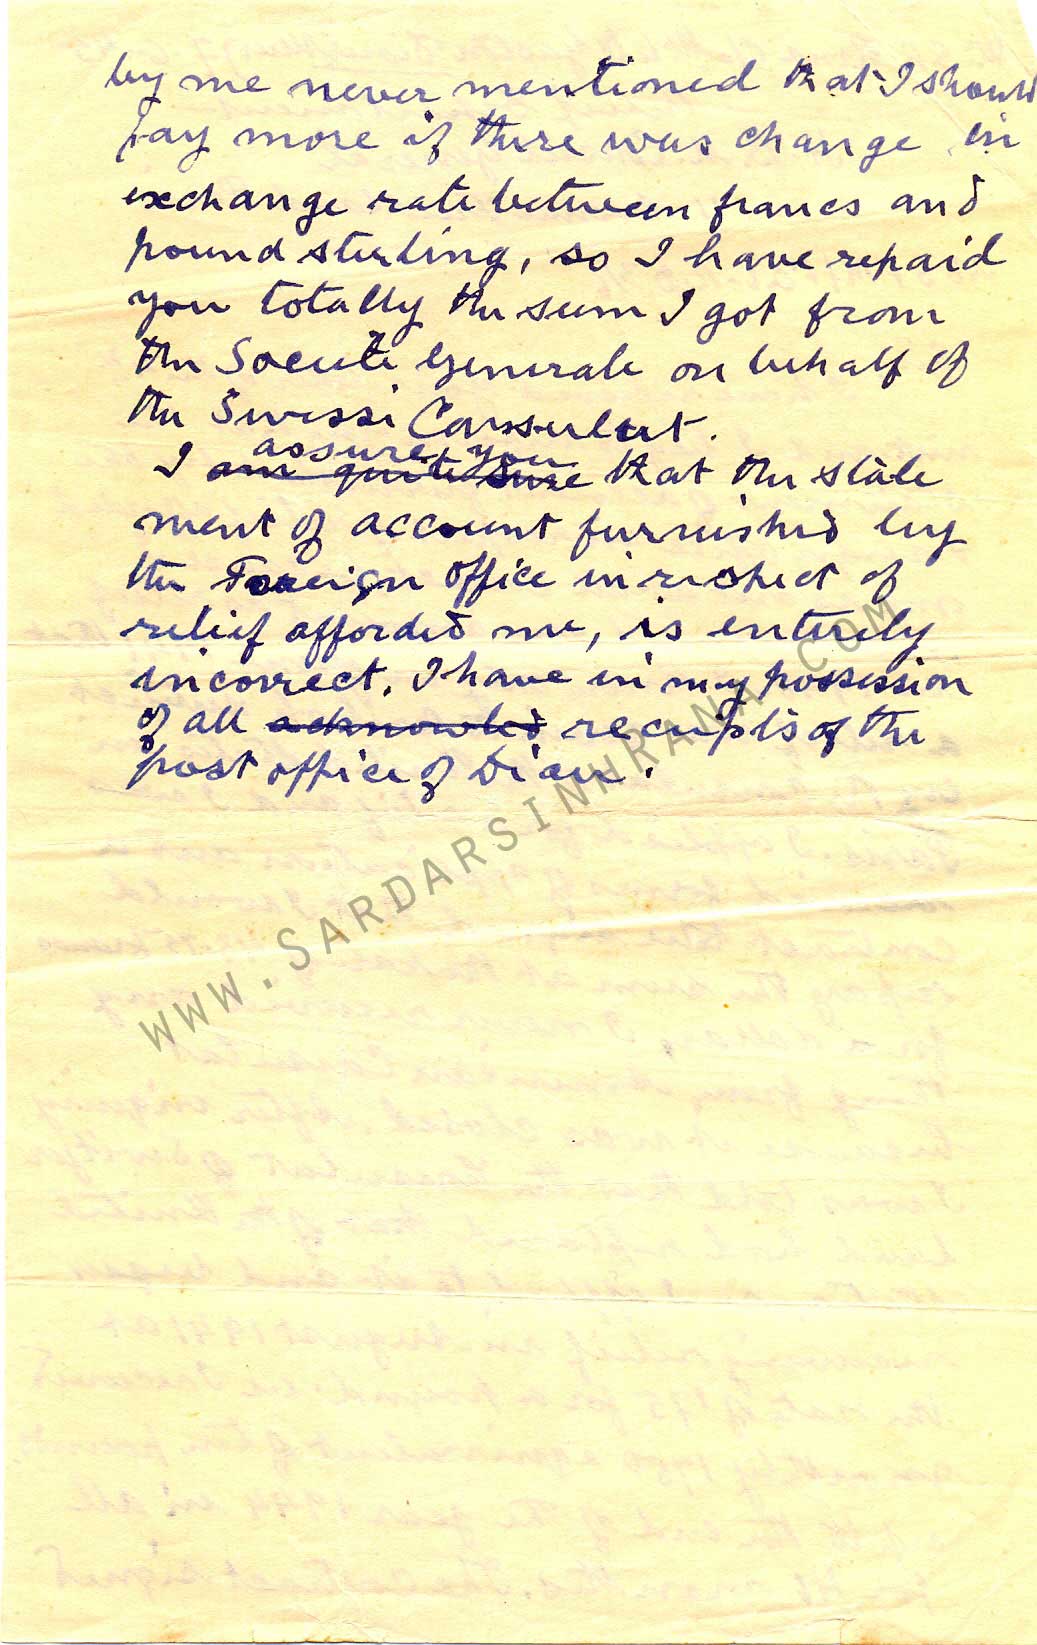 by me never mentioned that I should
pay more if there was change in
exchange rate between francs and
pound sterling, so I have repaid
you totally the sum I got from
the Société Generale on behalf of
the Swissi Consulat.
assure you
I am quite sure that the state
ment of account furnished by
the Foreign office in respect of
relief afforded me, is entirely
incorrect. I have in my possession
of all acknowled receipts of the
post office of
WWW.SARDARSINHRANA.COM